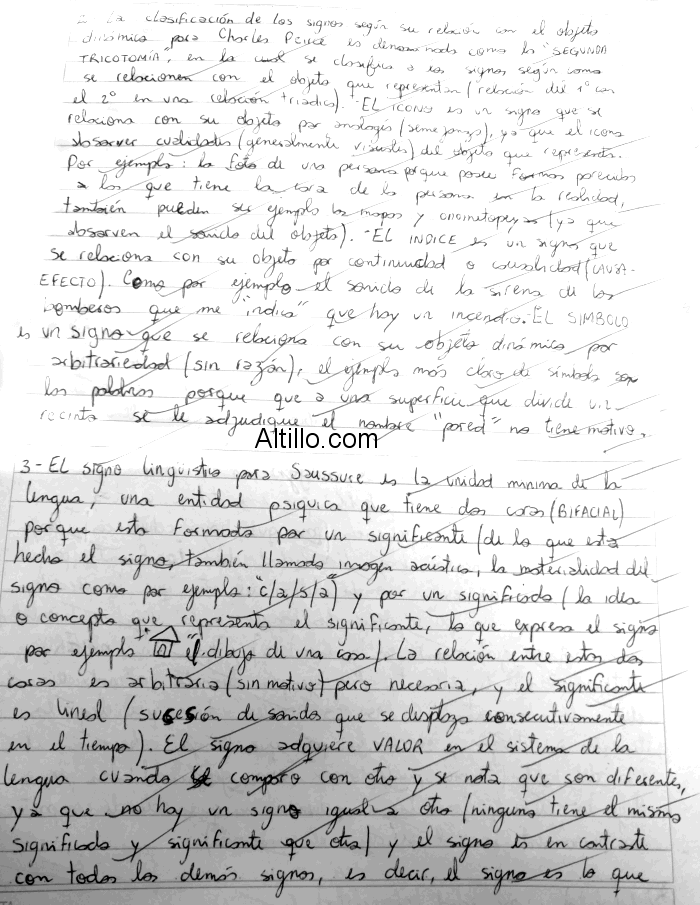 2. La clasificación de los signos según su relación con el objeto
dinámico para Charles Peirce es denominada como la "SEGUNDA
TRICOTOMÍA", en la cual se clasifica a los signos según como
se relacionen con el objeto que representan (relación del 1º con
el 2º en una relación triadica). -EL ICONO es un signo que se
relaciona con su objeto por analogía (semejanza), ya que el icono
absorver cualidades (generalmente visuales) del objeto que representa.
Por ejemplo: la foto de una persona porque posee formas parecidas
a las que tiene la cara de la persona en la realidad,
también pueden ser ejemplo los mapas y onomatopeyas (ya que
absorven el sonido del objeto). -EL INDICE es un signo que
se relaciona con su objeto por continuidad o causalidad (CAUSA-
EFECTO). Como por ejemplo el sonido de la sirena de los
bomberos que me "indica" que hay un incendio. -EL SIMBOLO
es un signo que se relaciona con su objeto dinámico por
arbitrariedad (sin razón), el ejemplo más claro de simbolo son
las palabras porque que a una superficie que divide un
recinto se le adjudique el nombre "pared" no tiene motivo.
Altillo.com
3- EL signo lingüístico para Saussure es la unidad minima de la
lengua, una entidad psiquica que tiene dos caras (BIFACIAL)
porque esta formada por un significante (de lo que esta
hecho el signo, también llamada imagen acústica, la materialidad del
signo como por ejemplo: "c/a/s/a") y por un significado (la idea
o concepto que representa el significante, lo que expresa el signo
por ejemplo "el dibujo de una casa). La relación entre estas dos
caras es arbitraria (sin motivo) pero necesaria, y el significante
es lineal (sucesión de sonidos que se desplaza consecutivamente
en el tiempo). El signo adquiere VALOR en el sistema de la
lengua cuando se comparo con otro y se nota que son diferentes,
ya que no hay un signo igual a otro (ninguno tiene el mismo
significado y significante que otro) y el signo es en contraste
con todos los demás signos, es decir, el signo es lo que